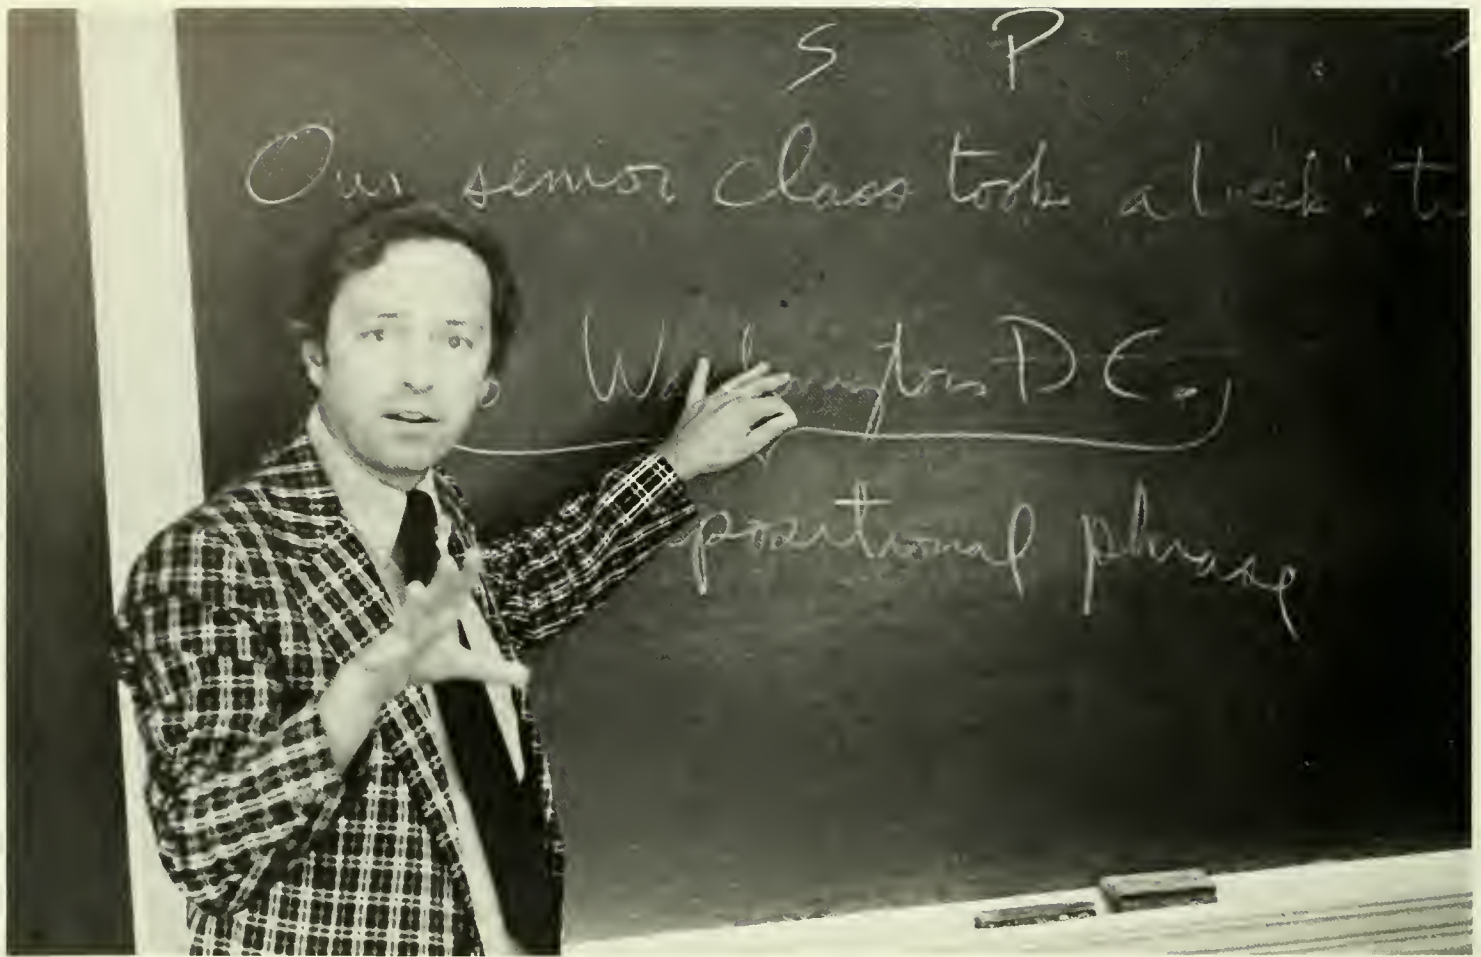 S P
Our senior class took a
Washington D C.,
positional phrase